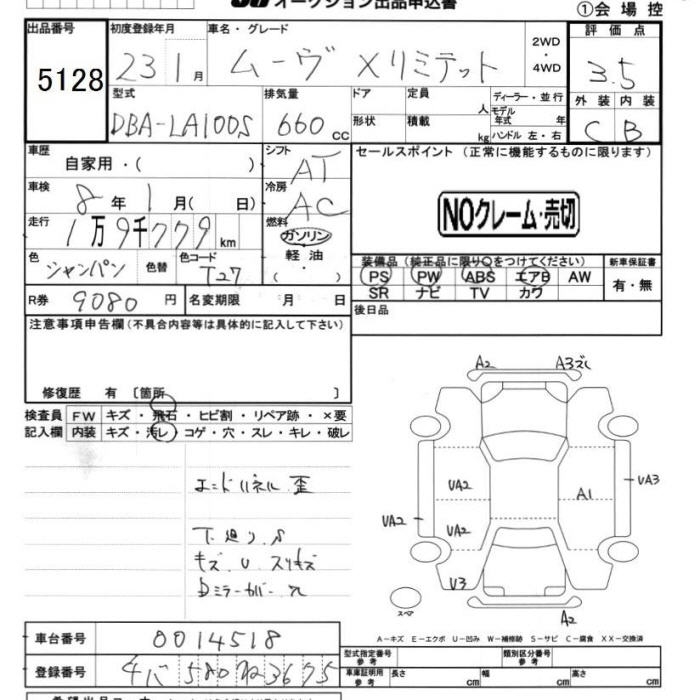 オークション出品申込書
①会場控
出品番号 初度登録年月 車名・グレード 評価点
5128 23 1月 ムーヴ Xリミテット 2WD・4WD 3.5
型式 排気量 ドア 定員 人 ディーラー・並行 外装 内装
DBA-LA100S 660cc 形状 積載 kg モデル年式 年 ハンドル 左・右 C B
車歴 自家用・( ) シフト AT セールスポイント (正常に機能するものに限ります)
車検 8年 1月( 日) 冷房 AC
NOクレーム・売切
走行 1万9千779km 燃料 ガソリン
軽油・( )
色 シャンパン 色替 色コード T27
装備品 (純正品に限り○をつけてください) 新車保証書
PS PW ABS エアB AW 有・無
SR ナビ TV カワ
R券 9080円 名変期限 月 日
後日品
注意事項申告欄(不具合内容等は具体的に記入して下さい)
修復歴 有〔箇所 〕
検査員 FW キズ・飛石・ヒビ割・リペア跡・×要
記入欄 内装 キズ・汚レ・コゲ・穴・スレ・キレ・破レ
エンドパネル 歪
下廻り S
キズ U スリキズ
Dミラーカバー 穴
A2 A3ズレ
UA2 UA3
A1
UA2 UA2
U3
スペア
A2
A-キズ E-エクボ U-凹み W-補修跡 S-サビ C-腐食 XX-交換済
車台番号 0014518
型式指定番号 参考 類別区分番号 参考
登録番号 チバ 580 ね 3675
車庫証明用 参考 長さ cm 幅 cm 高さ cm
希望出品コーナー